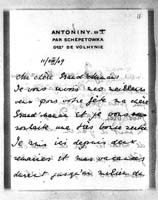 ANTONINY
PAR SCHEPETOWKA
GVT DE VOLHYNIE
Ma chère Grand'maman
Je vous envoie mes meilleurs
vœux pour votre fête ma chère
Grand'maman et je vous
souhaite une très bonne santé
Je suis ici depuis deux
semaines et mes vacances
durent jusqu'au milieu de